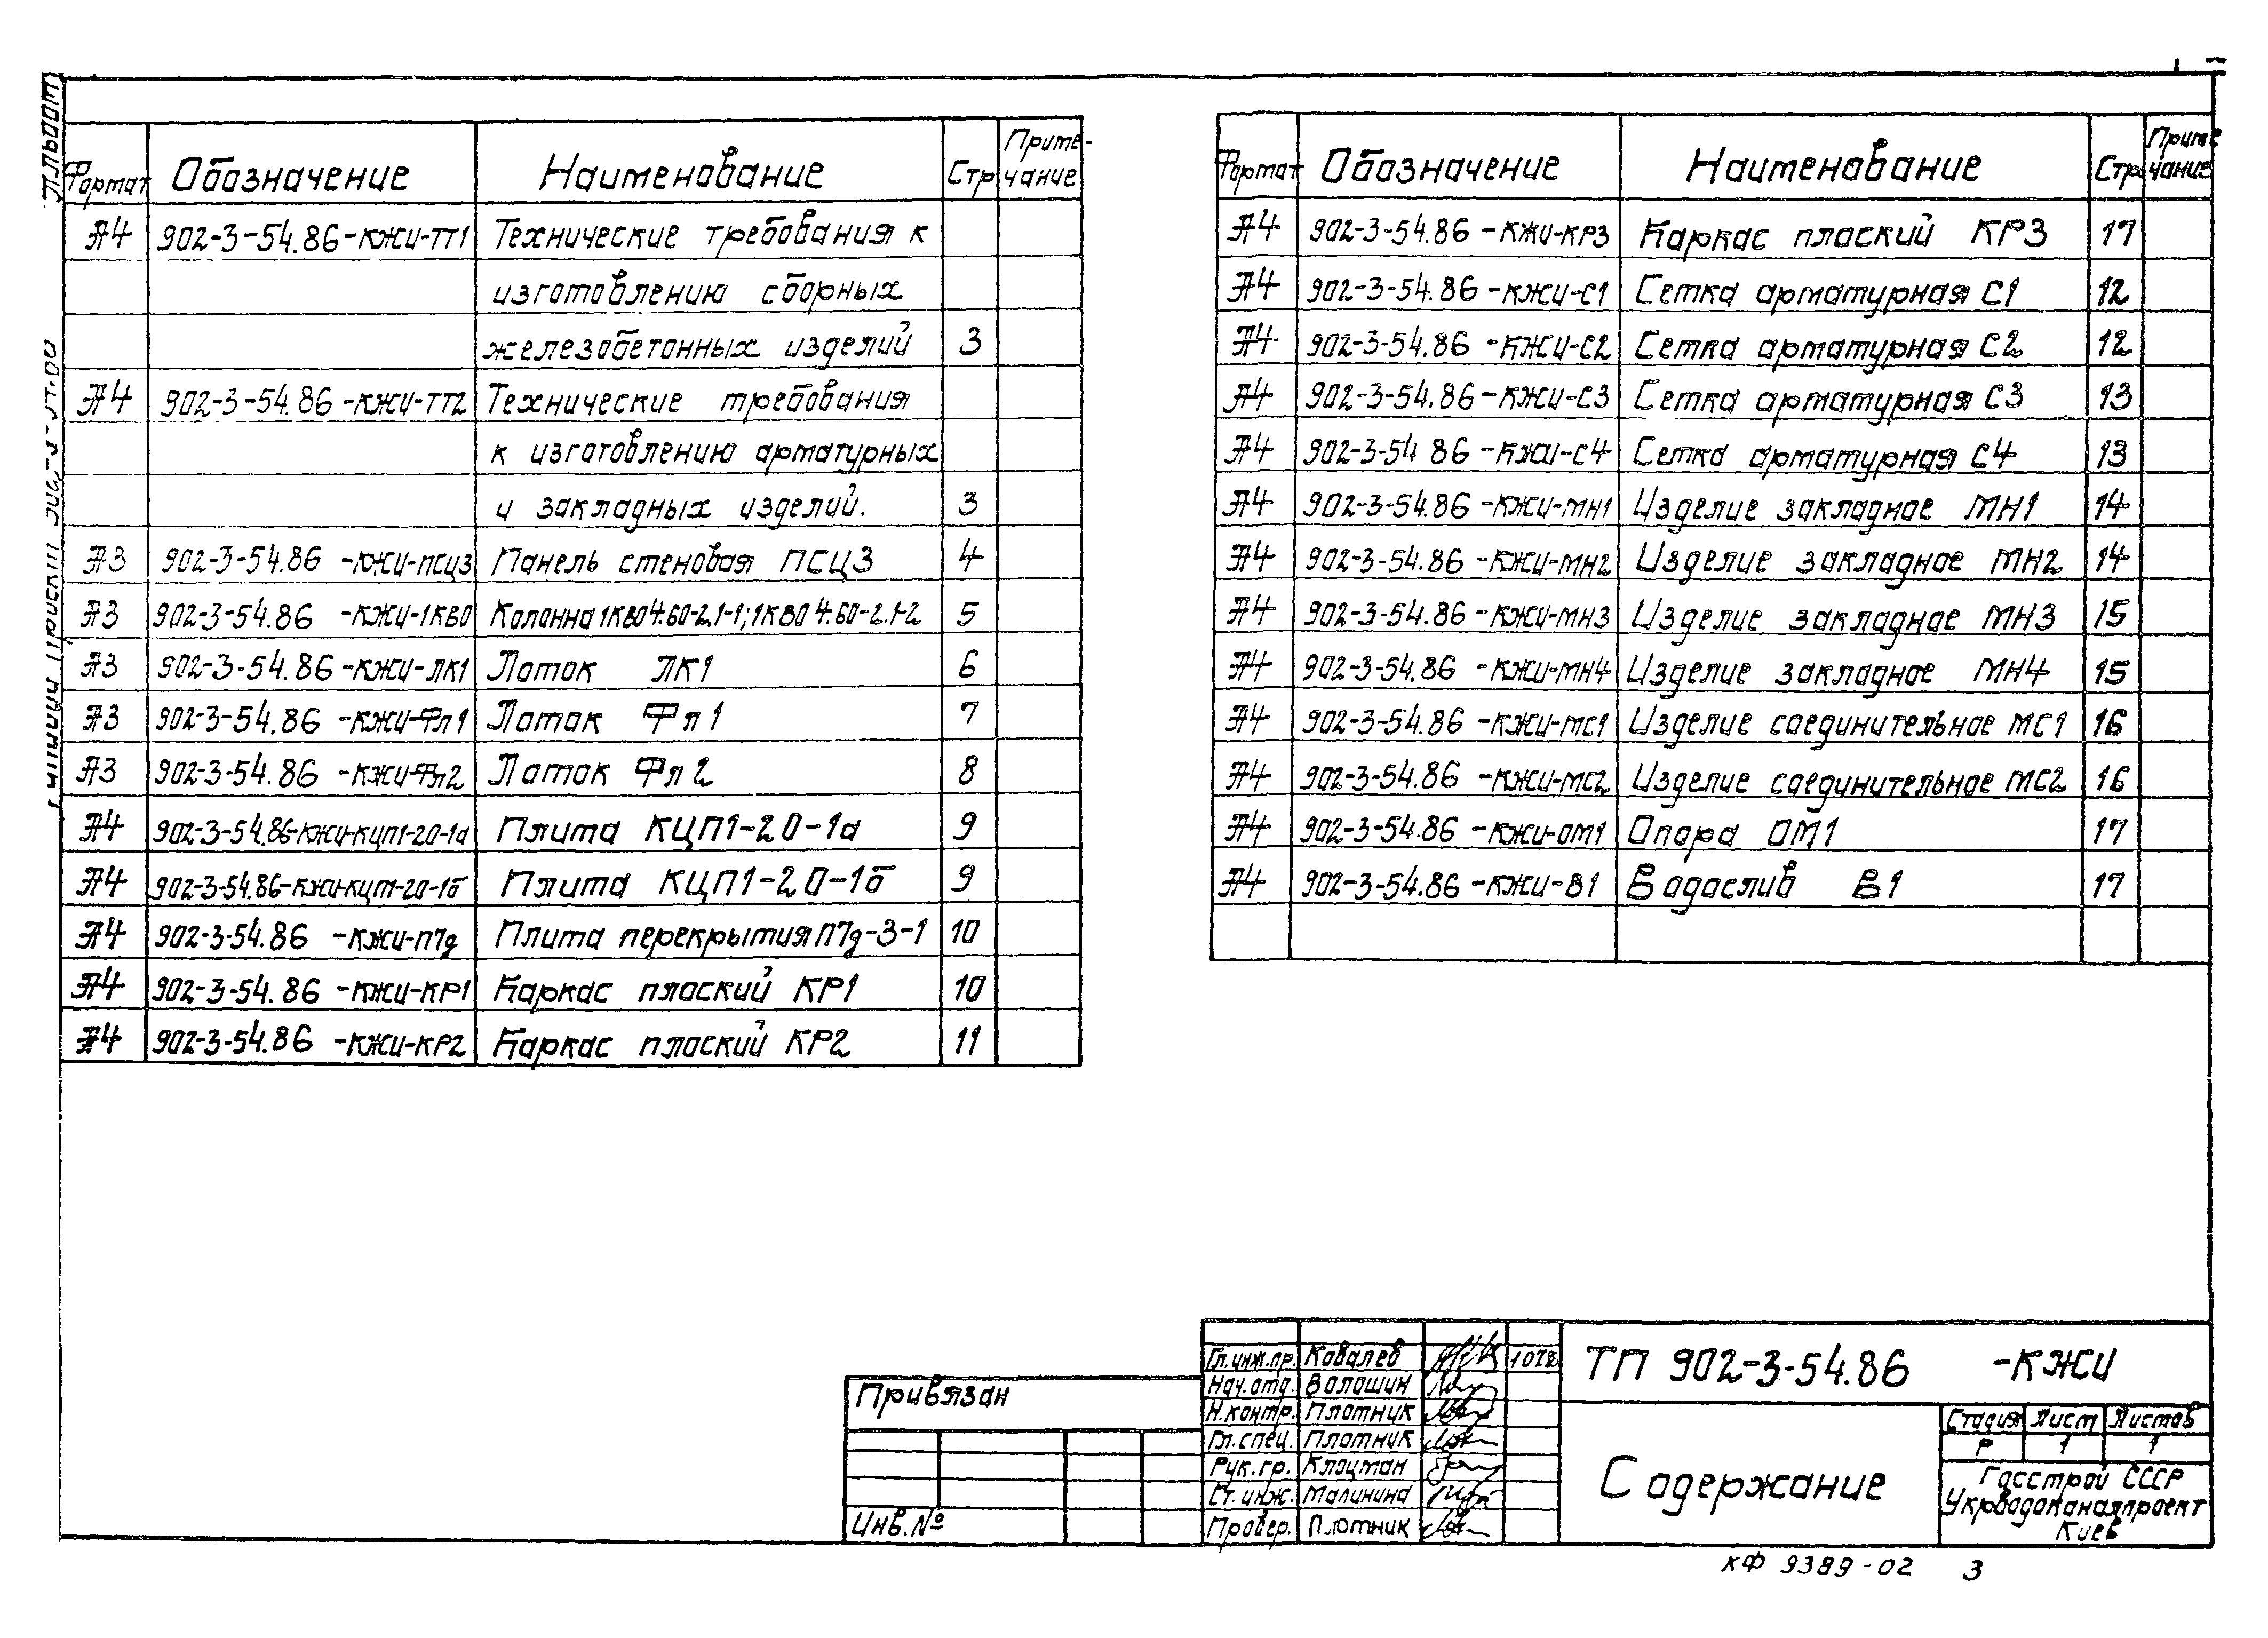 Альбом
Формат Обозначение Наименование Стр Приме-чание
А4 902-3-54.86-КЖИ-ТТ1 Технические требования к
изготовлению сборных
железобетонных изделий 3
А4 902-3-54.86-КЖИ-ТТ2 Технические требования
к изготовлению арматурных
и закладных изделий. 3
А3 902-3-54.86-КЖИ-ПСЦ3 Панель стеновая ПСЦ3 4
А3 902-3-54.86-КЖИ-1КВО Колонна 1КВО4.60-2.1-1; 1КВО 4.60-2.1-2 5
А3 902-3-54.86-КЖИ-ЛК1 Лоток ЛК1 6
А3 902-3-54.86-КЖИ-Фл1 Лоток Фл1 7
А3 902-3-54.86-КЖИ-Фл2 Лоток Фл2 8
А4 902-3-54.86-КЖИ-КЦП1-20-1а Плита КЦП1-20-1а 9
А4 902-3-54.86-КЖИ-КЦП1-20-1б Плита КЦП1-20-1б 9
А4 902-3-54.86-КЖИ-П7д Плита перекрытия П7д-3-1 10
А4 902-3-54.86-КЖИ-КР1 Каркас плоский КР1 10
А4 902-3-54.86-КЖИ-КР2 Каркас плоский КР2 11
Формат Обозначение Наименование Стр Приме чание
А4 902-3-54.86-КЖИ-КР3 Каркас плоский КР3 17
А4 902-3-54.86-КЖИ-С1 Сетка арматурная С1 12
А4 902-3-54.86-КЖИ-С2 Сетка арматурная С2 12
А4 902-3-54.86-КЖИ-С3 Сетка арматурная С3 13
А4 902-3-54 86-КЖИ-С4 Сетка арматурная С4 13
А4 902-3-54.86-КЖИ-МН1 Изделие закладное МН1 14
А4 902-3-54.86-КЖИ-МН2 Изделие закладное МН2 14
А4 902-3-54.86-КЖИ-МН3 Изделие закладное МН3 15
А4 902-3-54.86-КЖИ-МН4 Изделие закладное МН4 15
А4 902-3-54.86-КЖИ-МС1 Изделие соединительное МС1 16
А4 902-3-54.86-КЖИ-МС2 Изделие соединительное МС2 16
А4 902-3-54.86-КЖИ-ОМ1 Опора ОМ1 17
А4 902-3-54.86-КЖИ-В1 Водослив В1 17
Привязан
Инв.№
Гл.инж.пр. Ковалев
Нач.отд. Волошин
Н.контр. Плотник
Гл.спец. Плотник
Рук.гр. Клоцман
Ст.инж. Малинина
Провер. Плотник
ТП 902-3-54.86 -КЖИ
Содержание
Стадия Лист Листов
Р 1 1
Госстрой СССР
Укрводоканалпроект
Киев
КФ 9389-02 3